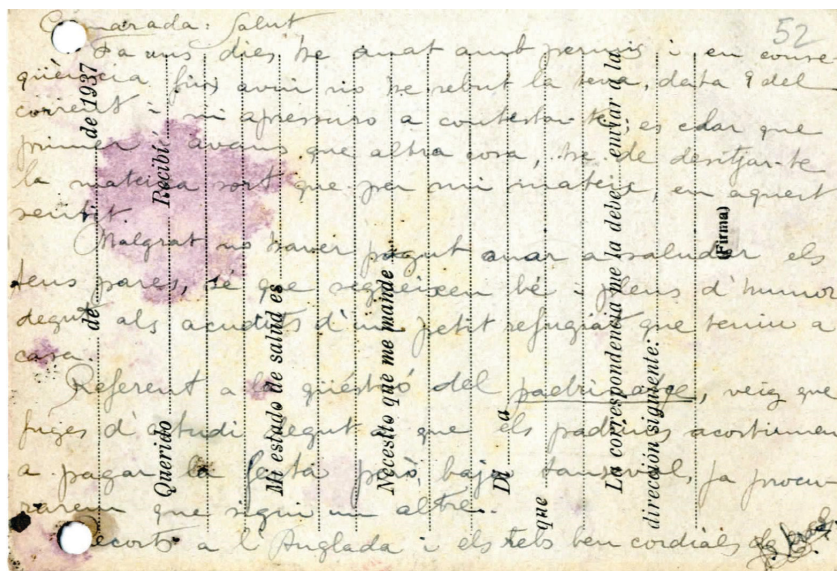 Camarada: Salut
52
Fa uns dies he anat amb permís i en conse-
qüència fins avui no he rebut la teva, data 9 del
corrent i m'apressuro a contestar-te, es clar que
primer i avans que altra cosa, he de desitjar-te
la mateixa sort que per mi mateix, en aquest
sentit.
Malgrat no haver pogut anar a saludar els
teus pares, sé que segueixen bé i plens d'humor
degut als acudits d'un petit refugiat que teniu a
casa.
Referent a la qüestió del padrinatge, veig que
fuges d'estudi degut a que els padrins acostumen
a pagar la festa però, baja tansevol, ja procu-
rarem que sigui un altre.
Recorts a l'Anglada i els tebs ben cordials de
de de 1937
Querido Recibí
Mi estado de salud es
Necesito que me mande
Di a
que
La correspondencia me la debe enviar a la
dirección siguiente:
(Firma)